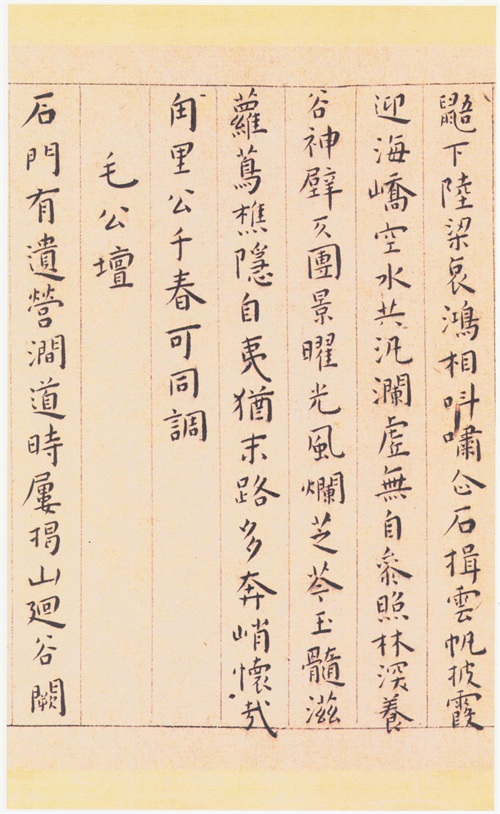 鼯下陸梁哀鴻相叫嘯仚石揖雲帆披霞
迎海嶠空水共汎瀾虛無自參照林深養
谷神壁仄團景曜光風爛芝苓玉髓滋
蘿蔦樵隱自夷猶末路多奔峭懷哉
甪里公千春可同調
毛公壇
石門有遺營澗道時屢揭山廻谷闕